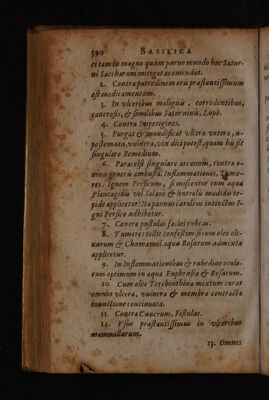 590 BASILICA
ei tam in magno quàm paruo mundo hoc Satur-
ni Saccharum mitigat ac emendat.
2. Contra putredinem oris præstantissimum
est medicamentum.
3. In vlceribus malignis, corrodentibus,
cancrosis, & similibus Saturninis, Lupo.
4. Contra Impetigines.
5. Purgat & mundificat vlcera vetera, a-
postemata, vulnera, vix dici potest, quam his sit
singulare Remedium.
6. Paracelsi singulare arcanum, contra o-
mnis generis ambusta, Inflammationes, Tumo-
res, Ignem Persicum, si misceatur cum aqua
Plantaginis vel Solani & linteolis madidis te-
pide applicetur: Ita pannus cæruleus intinctus I-
gni Persico adhibetur.
7. Contra pustulas faciei rubeas.
8. Tumores tollit confestim si cum oleo oli-
uarum & Chamæmel. aqua Rosarum admixta
applicetur.
9. In Inflammationibus & rubedine oculo-
rum optimum in aqua Euphrasiæ & Rosarum.
10. Cum oleo Terebinthina mixtum curat
omnia vlcera, vulnera & membra contracta
inunctione continuata.
11. Contra Cancrum, Fistulas.
12. Vsus præstantissimus in vlceribus
mammillarum.
13. Omnes